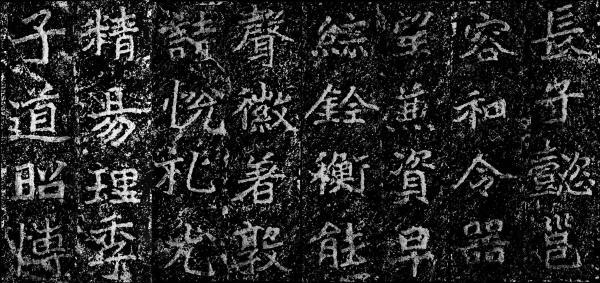 長子懿邕
容和令器
望兼資早
綜銓衡能
聲徽著敦
詩悅礼尤
精易理季
子道昭愽